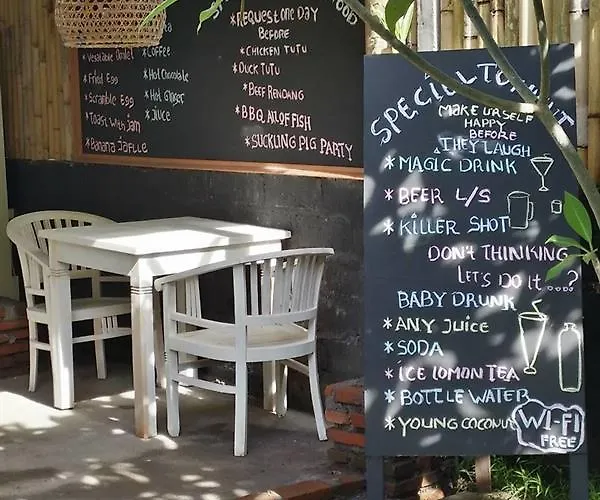 REQUEST ONE DAY
BEFORE
*CHICKEN TUTU
*DUCK TUTU
*BEEF RENDANG
*B.B.Q ALOF FISH
*SUCKLING PIG PARTY
FOOD
*Vegetable
*Fried Egg
*Scramble Egg
*Toast With Jam
*Banana Jaffle
*Coffee
*Hot Chocolate
*Hot Ginger
*Juice
SPECIAL TO
MAKE YOURSELF
HAPPY
BEFORE
THEY LAUGH
*MAGIC DRINK
*BEER L/S
*KILLER SHOT
DON'T THINKING
LET'S DO IT....?
BABY DRUNK
*ANY JUICE
*SODA
*ICE LOMON TEA
*BOTTLE WATER
*YOUNG COCONUT
WI-FI
FREE